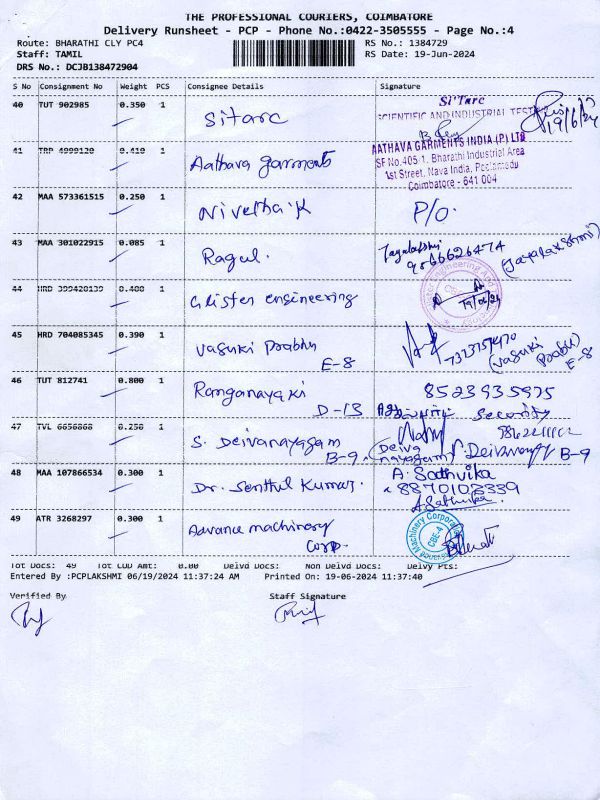 THE PROFESSIONAL COURIERS, COIMBATORE
Delivery Runsheet - PCP - Phone No.:0422-3505555 - Page No.:4
Route: BHARATHI CLY PC4 RS No.: 1384729
Staff: TAMIL RS Date: 19-Jun-2024
DRS No.: DCJB138472904
S No Consignment No Weight PCS Consignee Details Signature
40 TUT 902985 0.350 1 Sitarc Si'Tarc
SCIENTIFIC AND INDUSTRIAL TEST 19/6/24
41 TRP 4999120 0.410 1 Aathava garments AATHAVA GARMENTS INDIA (P) LTD
SF No.405-1, Bharathi Industrial Area
1st Street, Nava India, Peelamedu
Coimbatore - 641 004
42 MAA 573361515 0.250 1 Nivetha K P/O.
43 MAA 301022915 0.085 1 Ragul. Jayalakshmi
9566626474 (Jayalakshmi)
44 HRD 399420139 0.400 1 Glister engineering 19/06/24
45 HRD 704085345 0.390 1 Vasuki Prabhu E-8 (Vasuki Prabhu) E-8
46 TUT 812741 0.800 1 Ranganayaki D-13 8523935975
Security
47 TVL 6656868 0.250 1 S. Deivanayagam B-9. (Deiva nayagam) B-9
48 MAA 107866534 0.300 1 Dr. Senthil Kumar. A. Sadhvika
8870103339
A. Sadhvika
49 ATR 3268297 0.300 1 Advance machinery Corp. Machinery Corporation CBE-4
Tot Docs: 49 Tot COD Amt: 0.00 Delvd Docs: Non Delvd Docs: Delvy Pts:
Entered By :PCPLAKSHMI 06/19/2024 11:37:24 AM Printed On: 19-06-2024 11:37:40
Verified By Staff Signature